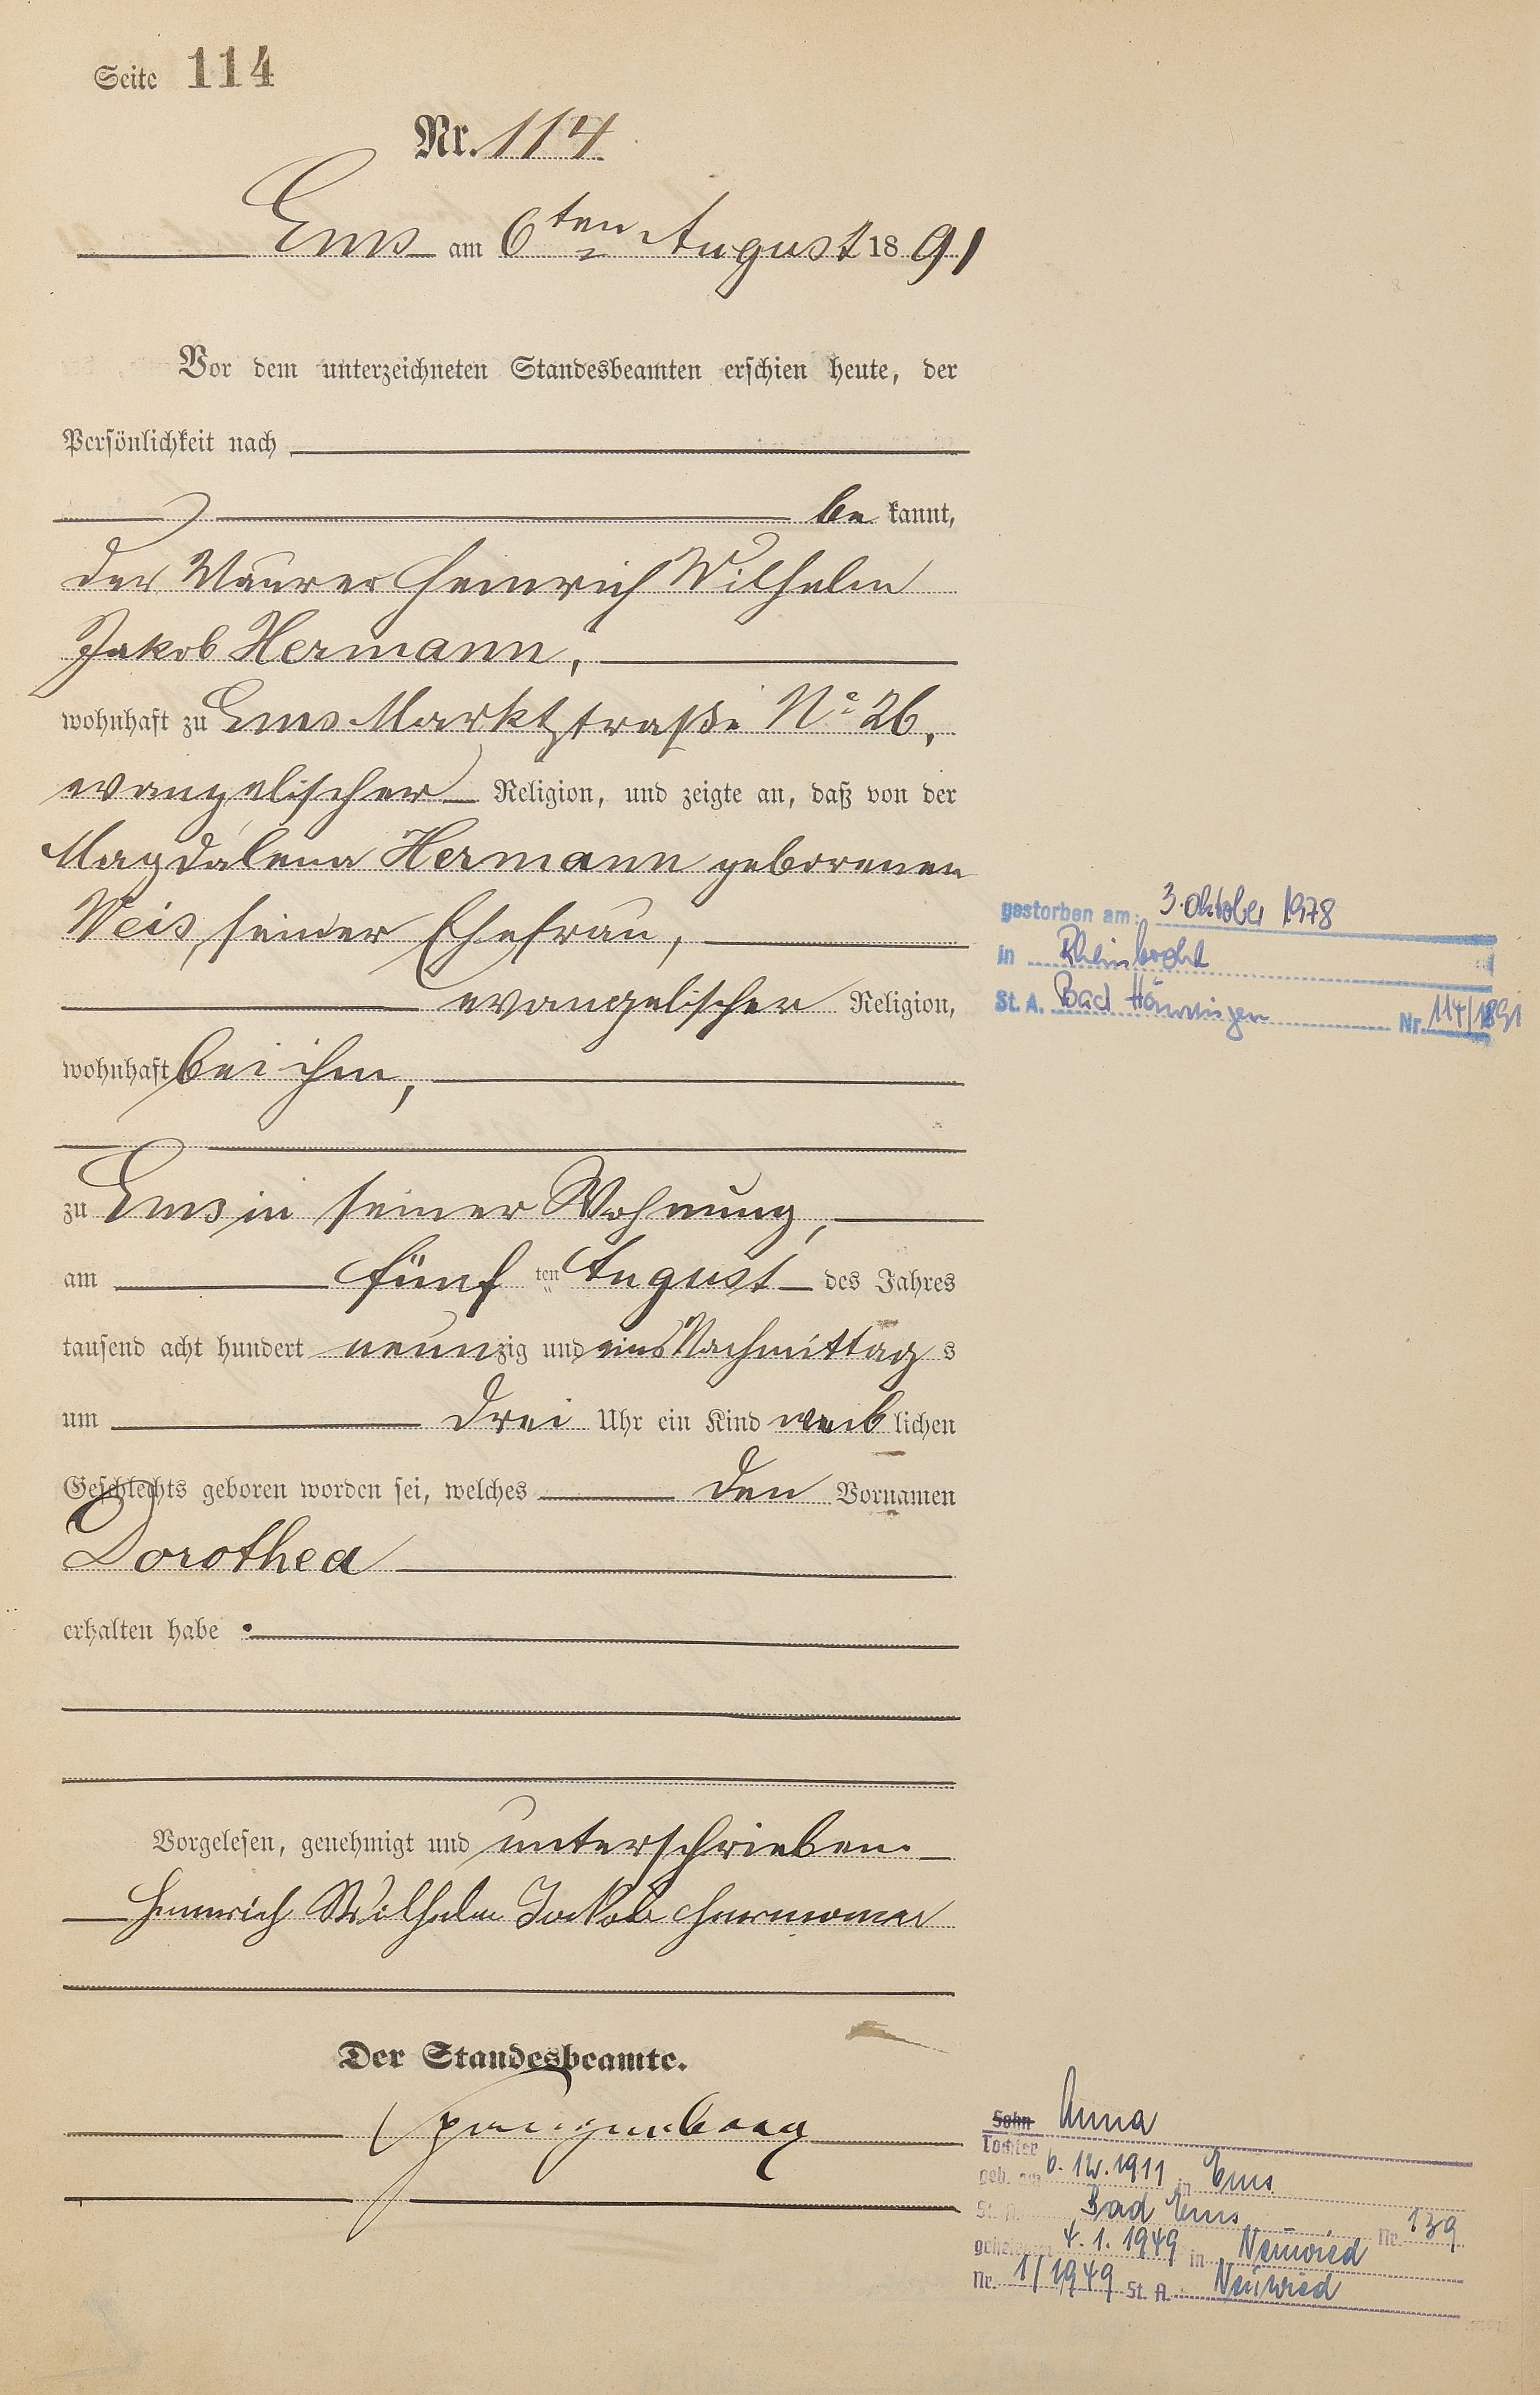 Seite 114
Nr. 114
Ems am 6ten August 1891
Vor dem unterzeichneten Standesbeamten erschien heute, der
Persönlichkeit nach
be kannt,
der Maurer Heinrich Wilhelm
Jakob Hermann,
wohnhaft zu Ems Marktstraße No 26,
evangelischer Religion, und zeigte an, daß von der
Magdalena Hermann geborenen
Weis, seiner Ehefrau,
evangelischer Religion,
wohnhaft bei ihm,
zu Ems in seiner Wohnung,
am fünf ten August des Jahres
tausend acht hundert neunzig und eins Nachmittag s
um drei Uhr ein Kind weib lichen
Geschlechts geboren worden sei, welches den Vornamen
Dorothea
erhalten habe.
Vorgelesen, genehmigt und unterschrieben.
Heinrich Wilhelm Jackob Hermann
Der Standesbeamte.
gestorben am: 3. Oktober 1978
in Rheinbrohl
St. A. Bad Hönningen Nr. 114/1891
Sohn Anna
Tochter
geb. am 6.12.1911 in Ems
St. A. Bad Ems Nr. 139
geheiratet 4.1.1949 in Neuwied
Nr. 1/1949 St. A. Neuwied